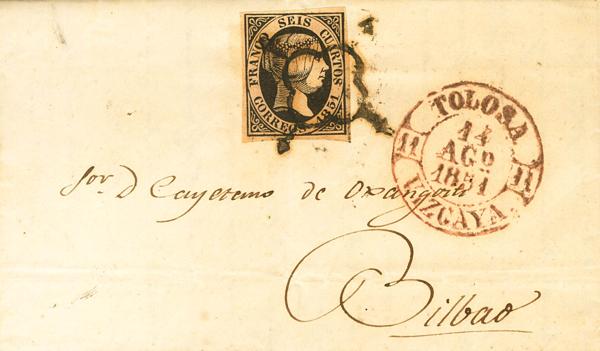 FRANCO SEIS CUARTOS
CORREOS 1851
TOLOSA
14
AGO
1851
11 11
VIZCAYA
Sor. D Cayetano de
Bilbao